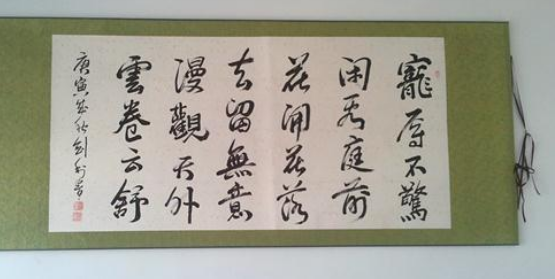 寵辱不驚
闲看庭前
花開花落
去留無意
漫觀天外
雲卷云舒
庚寅年秋剑利書